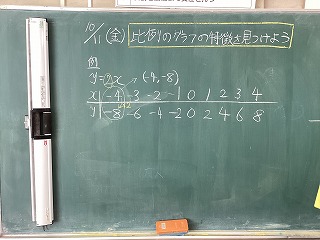 10/11(金) 比例のグラフの特徴を見つけよう
例
y=2x (-4,-8)
x -4 -3 -2 -1 0 1 2 3 4
×2
y -8 -6 -4 -2 0 2 4 6 8